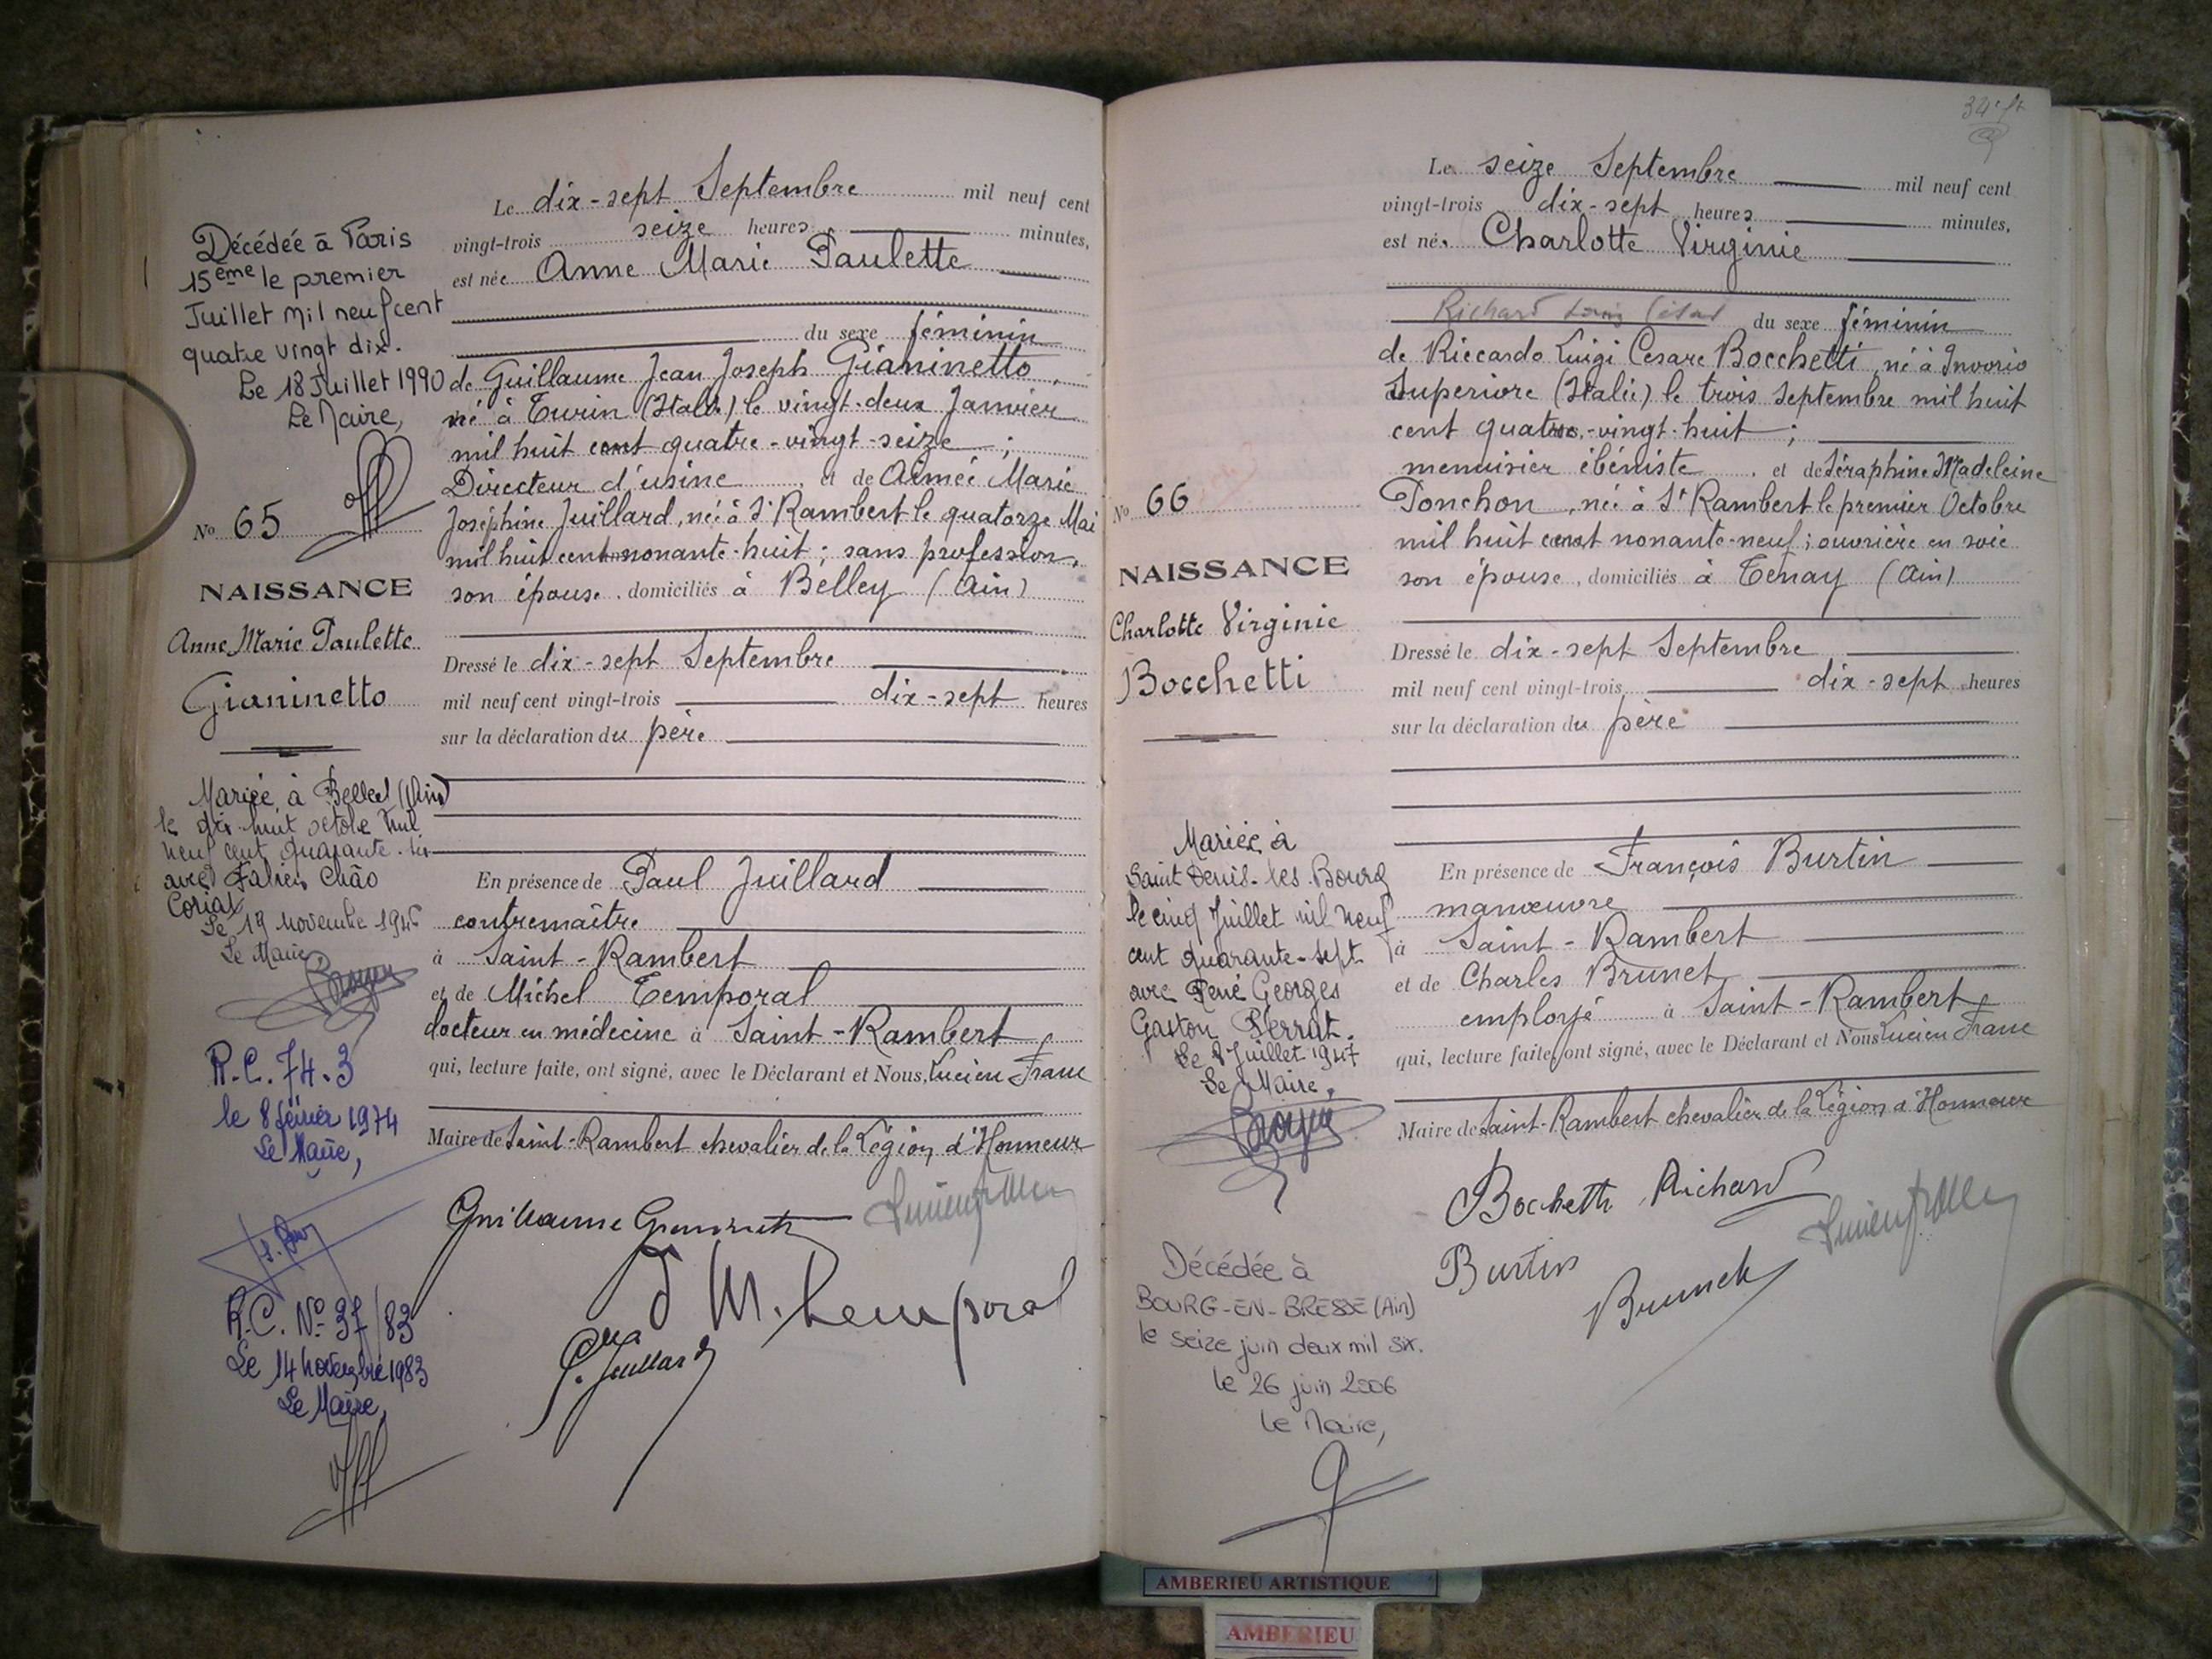 Décédée à Paris
15ème le premier
Juillet mil neuf cent
quatre vingt dix.
Le 18 Juillet 1990
Le Maire,
No 65
NAISSANCE
Anne Marie Paulette
Gianinetto
Mariée à Belley (Ain)
le dix-huit octobre mil
neuf cent quarante-six
avec
Le 19 Novembre 1946
Le Maire,
R.C. 74.3
le 8 février 1974
Le Maire,
R.C. No 37/83
Le 14 novembre 1983
Le Maire,
Le dix-sept Septembre mil neuf cent
vingt-trois seize heures minutes,
est née Anne Marie Paulette
du sexe féminin
de Guillaume Jean Joseph Gianinetto,
né à Turin (Italie) le vingt-deux Janvier
mil huit cent quatre-vingt-seize ;
Directeur d'usine, et de Aimée Marie
Joséphine Juillard, née à St Rambert le quatorze Mai
mil huit cent nonante-huit ; sans profession,
son épouse, domiciliés à Belley (Ain)
Dressé le dix-sept Septembre
mil neuf cent vingt-trois dix-sept heures
sur la déclaration du père
En présence de Paul Juillard
contremaître
à Saint-Rambert
et de Michel Temporal
docteur en médecine à Saint-Rambert
qui, lecture faite, ont signé, avec le Déclarant et Nous, Lucien Franc
Maire de Saint-Rambert chevalier de la Légion d'Honneur
M. Temporal
Juillard
No 66
NAISSANCE
Charlotte Virginie
Bocchetti
Mariée à
Saint Denis-les-Bourg
le cinq Juillet mil neuf
cent quarante-sept
avec René Georges
Gaston Perrat.
Le 8 Juillet 1947
Le Maire,
Décédée à
BOURG-EN-BRESSE (Ain)
le seize juin deux mil six.
le 26 juin 2006
Le Maire,
Le seize Septembre mil neuf cent
vingt-trois dix-sept heures minutes,
est née Charlotte Virginie
Richard Louis César du sexe féminin
de Riccardo Luigi Cesare Bocchetti, né à Invorio
Superiore (Italie) le trois Septembre mil huit
cent quatre-vingt-huit ;
menuisier ébéniste, et de Séraphine Madeleine
Ponchon, née à St Rambert le premier Octobre
mil huit cent nonante-neuf ; ouvrière en soie
son épouse, domiciliés à Tenay (Ain)
Dressé le dix-sept Septembre
mil neuf cent vingt-trois dix-sept heures
sur la déclaration du père
En présence de François Burtin
manœuvre
à Saint-Rambert
et de Charles Brunet,
employé à Saint-Rambert
qui, lecture faite, ont signé, avec le Déclarant et Nous Lucien Franc
Maire de Saint-Rambert chevalier de la Légion d'Honneur
Bocchetti Richard
Burtin
Brunet
AMBERIEU ARTISTIQUE
AMBERIEU